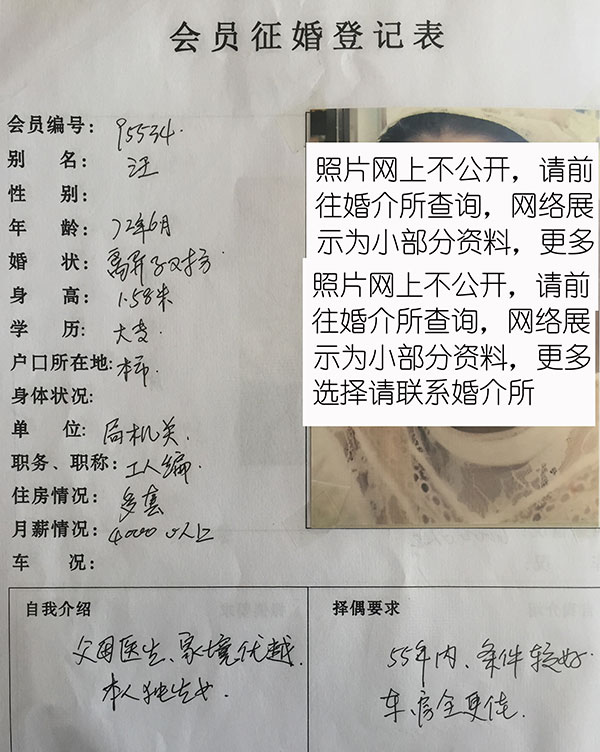 会员征婚登记表
会员编号: 95534
别 名: 汪
性 别:
年 龄: 72年6月
婚 状: 离异 子对方
身 高: 1.58米
学 历: 大专
户口所在地: 本市
身体状况:
单 位: 局机关.
职务、职称: 工人编.
住房情况: 多套
月薪情况: 4000以上
车 况:
照片网上不公开，请前
往婚介所查询，网络展
示为小部分资料，更多
照片网上不公开，请前
往婚介所查询，网络展
示为小部分资料，更多
选择请联系婚介所
自我介绍
父母医生、家境优越.
本人独生女.
择偶要求
55年内、条件较好
车、房全更佳.